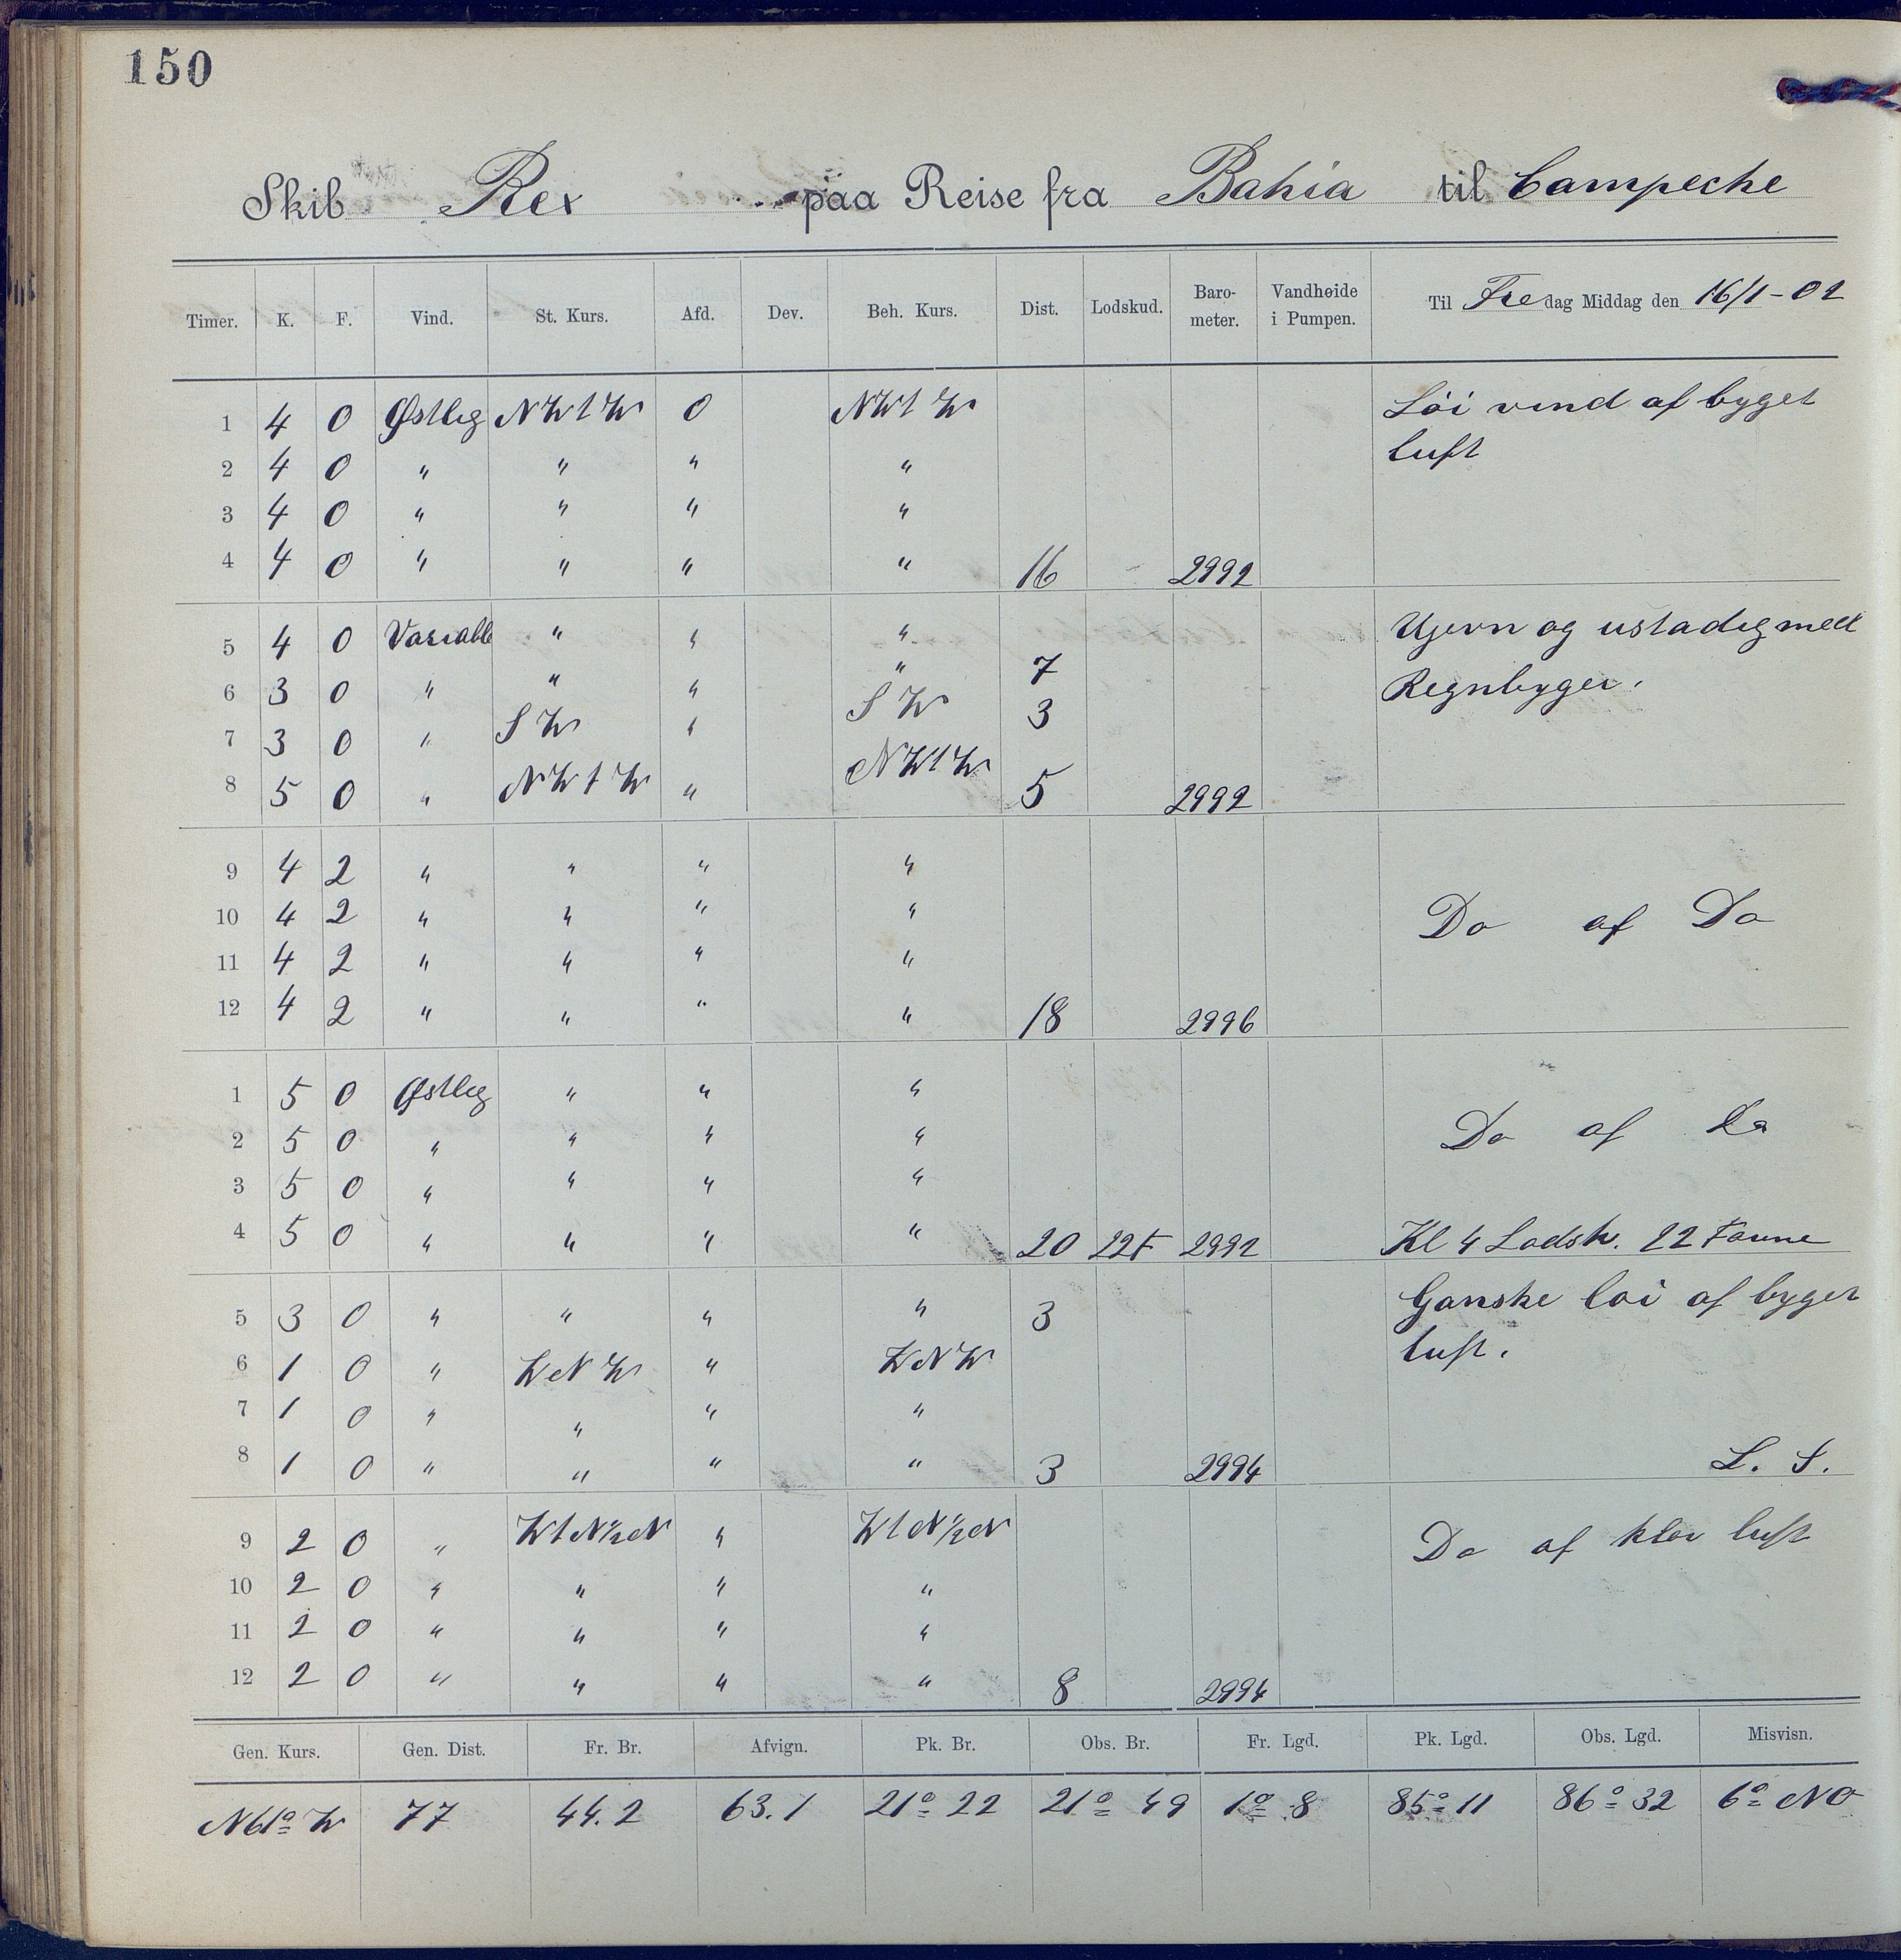 150
Skib Rex paa Reise fra Bahia til Campeche
Timer. K. F. Vind. St. Kurs. Afd. Dev. Beh. Kurs. Dist. Lodskud. Baro-meter. Vandhøide i Pumpen. Til Fredag Middag den 16/1-02
1 4 0 Østlig NWtW 0 NWtW Löi vind af byget
2 4 0 " " " " luft
3 4 0 " " " "
4 4 0 " " " " 16 2992
5 4 0 Variable " " " Ujevn og ustadig med
6 3 0 " " " " 7 Regnbyger.
7 3 0 " SW " SW 3
8 5 0 " NWtW " NWtW 5 2992
9 4 2 " " " "
10 4 2 " " " " Do af Do
11 4 2 " " " "
12 4 2 " " " " 18 2996
1 5 0 Østlig " " "
2 5 0 " " " " Do af Do
3 5 0 " " " "
4 5 0 " " " " 20 22F 2992 Kl 4 Lodsk. 22 Favne
5 3 0 " " " " 3 Ganske löi af byget
6 1 0 " WNW " WNW luft.
7 1 0 " " " "
8 1 0 " " " " 3 2994 L. S.
9 2 0 " WtN½N " WtN½N Do af klar luft
10 2 0 " " " "
11 2 0 " " " "
12 2 0 " " " " 8 2994
Gen. Kurs. Gen. Dist. Fr. Br. Afvign. Pk. Br. Obs. Br. Fr. Lgd. Pk. Lgd. Obs. Lgd. Misvisn.
N61° W 77 44.2 63.1 21° 22 21° 49 1° 8 85° 11 86° 32 6° NO